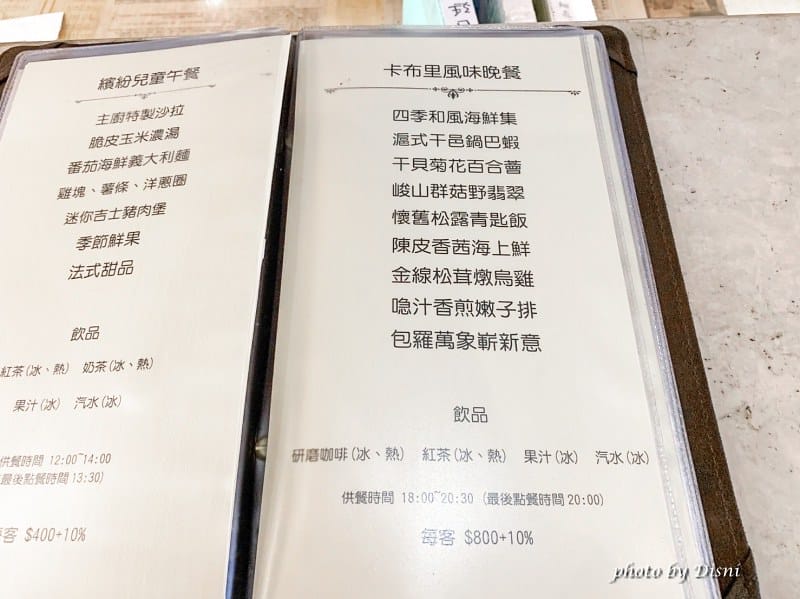 繽紛兒童午餐
主廚特製沙拉
脆皮玉米濃湯
番茄海鮮義大利麵
雞塊、薯條、洋蔥圈
迷你吉士豬肉堡
季節鮮果
法式甜品
飲品
紅茶(冰、熱) 奶茶(冰、熱)
果汁(冰) 汽水(冰)
供餐時間 12:00~14:00
最後點餐時間 13:30)
客 $400+10%
卡布里風味晚餐
四季和風海鮮集
滬式干邑鍋巴蝦
干貝菊花百合薈
峻山群菇野翡翠
懷舊松露青匙飯
陳皮香茜海上鮮
金線松茸燉烏雞
喼汁香煎嫩子排
包羅萬象嶄新意
飲品
研磨咖啡(冰、熱) 紅茶(冰、熱) 果汁(冰) 汽水(冰)
供餐時間 18:00~20:30 (最後點餐時間 20:00)
每客 $800+10%
photo by Disni